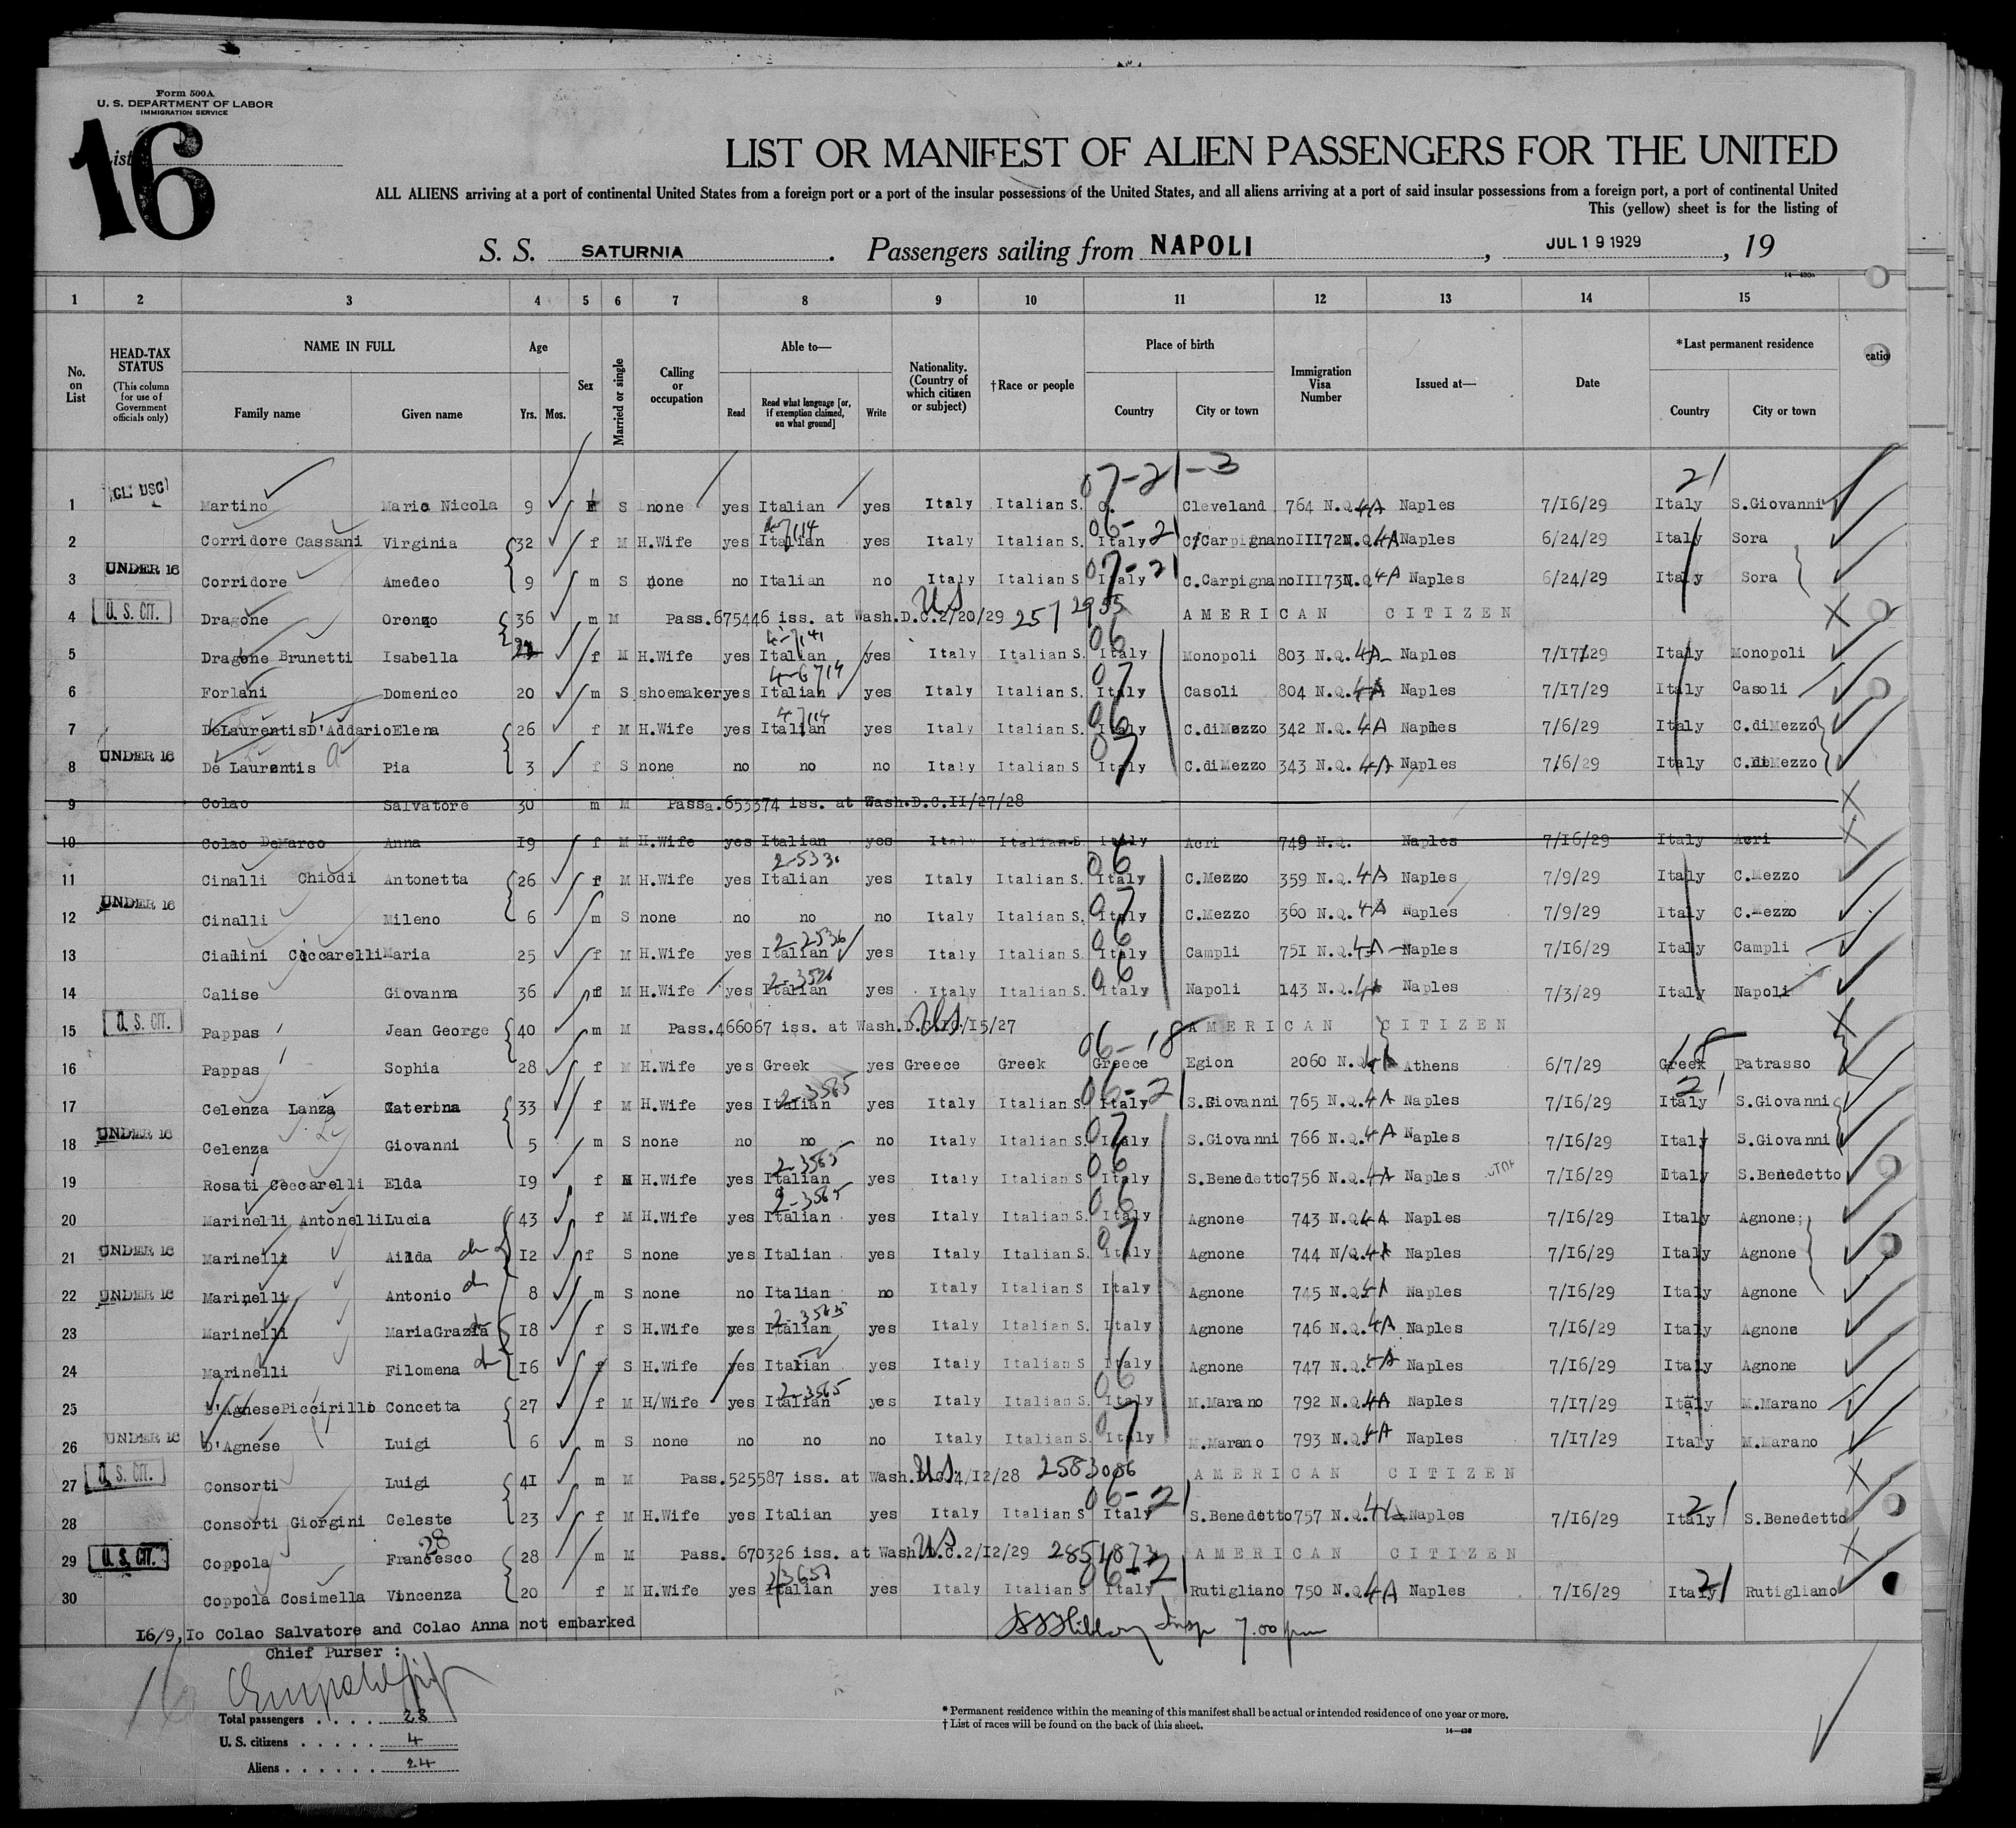 Form 500A
U. S. DEPARTMENT OF LABOR
IMMIGRATION SERVICE
16
LIST OR MANIFEST OF ALIEN PASSENGERS FOR THE UNITED
ALL ALIENS arriving at a port of continental United States from a foreign port or a port of the insular possessions of the United States, and all aliens arriving at a port of said insular possessions from a foreign port, a port of continental United
This (yellow) sheet is for the listing of
S. S. SATURNIA. Passengers sailing from NAPOLI, JUL 19 1929, 19
1 2 3 4 5 6 7 8 9 10 11 12 13 14 15
No. on List HEAD-TAX STATUS (This column for use of Government officials only) NAME IN FULL Family name Given name Age Yrs. Mos. Sex Married or single Calling or occupation Able to— Read Read what language [or, if exemption claimed, on what ground] Write Nationality. (Country of which citizen or subject) †Race or people Place of birth Country City or town Immigration Visa Number Issued at— Date *Last permanent residence Country City or town
07-21-3 21
1 Martino Maria Nicola 9 S none yes Italian yes Italy Italian S. Cleveland 764 N.Q. 4A Naples 7/16/29 Italy S.Giovanni
2 Corridore Cassani Virginia 32 f M H.Wife yes Italian yes Italy Italian S. Italy C.Carpignano III72 N.Q. 4A Naples 6/24/29 Italy Sora
3 UNDER 16 Corridore Amedeo 9 m S none no Italian no Italy Italian S. Italy C.Carpignano III73 N.Q 4A Naples 6/24/29 Italy Sora
4 U. S. CIT. Dragone Oronzo 36 m M Pass.675446 iss. at Wash.D.C.2/20/29 US AMERICAN CITIZEN
5 Dragone Brunetti Isabella f M H.Wife yes Italian yes Italy Italian S. 06 Italy Monopoli 803 N.Q. 4A Naples 7/17/29 Italy Monopoli
6 Forlani Domenico 20 m S shoemaker yes Italian yes Italy Italian S. 07 Italy Casoli 804 N.Q. 4A Naples 7/17/29 Italy Casoli
7 DeLaurentis D'Addario Elena 26 f M H.Wife yes Italian yes Italy Italian S. 06 Italy C.diMezzo 342 N.Q. 4A Naples 7/6/29 Italy C.diMezzo
8 UNDER 16 De Laurentis Pia 3 f S none no no no Italy Italian S 07 Italy C.diMezzo 343 N.Q. 4A Naples 7/6/29 Italy C.diMezzo
9 Colao Salvatore 30 m M Passa.653374 iss. at Wash.D.C.II/27/28
10 Colao DeMarco Anna 19 f M H.Wife yes Italian yes Italy Italian S Italy Acri 749 N.Q. Naples 7/16/29 Italy Acri
11 Cinalli Chiodi Antonetta 26 f M H.Wife yes Italian yes Italy Italian S. 06 Italy C.Mezzo 359 N.Q. 4A Naples 7/9/29 Italy C.Mezzo
12 UNDER 16 Cinalli Mileno 6 m S none no no no Italy Italian S. 07 Italy C.Mezzo 360 N.Q. 4A Naples 7/9/29 Italy C.Mezzo
13 Cialini Ciccarelli Maria 25 f M H.Wife yes Italian yes Italy Italian S. 06 Italy Campli 751 N.Q. 4A Naples 7/16/29 Italy Campli
14 Calise Giovanna 36 f M H.Wife yes Italian yes Italy Italian S. 06 Italy Napoli 143 N.Q. 4A Naples 7/3/29 Italy Napoli
15 U. S. CIT. Pappas Jean George 40 m M Pass.466067 iss. at Wash.D.C.10/15/27 US AMERICAN CITIZEN
16 Pappas Sophia 28 f M H.Wife yes Greek yes Greece Greek 06-18 Greece Egion 2060 N.Q. 4A Athens 6/7/29 Greek 18 Patrasso
17 Celenza Lanza Caterina 33 f M H.Wife yes Italian 2-3565 yes Italy Italian S. 06-21 Italy S.Giovanni 765 N.Q. 4A Naples 7/16/29 Italy 21 S.Giovanni
18 UNDER 16 Celenza Giovanni 5 m S none no no no Italy Italian S. 07 Italy S.Giovanni 766 N.Q. 4A Naples 7/16/29 Italy S.Giovanni
19 Rosati Ceccarelli Elda 19 f M H.Wife yes Italian 2-3565 yes Italy Italian S 06 Italy S.Benedetto 756 N.Q. 4A Naples 7/16/29 Italy S.Benedetto
20 Marinelli Antonelli Lucia 43 f M H.Wife yes Italian 2-3565 yes Italy Italian S. 06 Italy Agnone 743 N.Q. 4A Naples 7/16/29 Italy Agnone;
21 UNDER 16 Marinelli Ailda 12 f S none yes Italian yes Italy Italian S. 07 Italy Agnone 744 N/Q. 4A Naples 7/16/29 Italy Agnone
22 UNDER 16 Marinelli Antonio 8 m S none no Italian no Italy Italian S Italy Agnone 745 N.Q. 4A Naples 7/16/29 Italy Agnone
23 Marinelli MariaGrazia 18 f S H.Wife yes Italian 2-3565 yes Italy Italian S. Italy Agnone 746 N.Q. 4A Naples 7/16/29 Italy Agnone
24 Marinelli Filomena 16 f S H.Wife yes Italian yes Italy Italian S Italy Agnone 747 N.Q. 4A Naples 7/16/29 Italy Agnone
25 D'Agnese Piccirillo Concetta 27 f M H/Wife yes Italian 2-3565 yes Italy Italian S. 06 Italy M.Marano 792 N.Q. 4A Naples 7/17/29 Italy M.Marano
26 UNDER 16 D'Agnese Luigi 6 m S none no no no Italy Italian S. 07 Italy M.Marano 793 N.Q. 4A Naples 7/17/29 Italy M.Marano
27 U. S. CIT. Consorti Luigi 41 m M Pass.525587 iss. at Wash.D.C.4/12/28 US 2583086 AMERICAN CITIZEN
28 Consorti Giorgini Celeste 23 f M H.Wife yes Italian yes Italy Italian S 06-21 Italy S.Benedetto 757 N.Q. 4A Naples 7/16/29 Italy 21 S.Benedetto
29 U. S. CIT. Coppola Francesco 28 28 m M Pass. 670326 iss. at Wash.D.C.2/12/29 US AMERICAN CITIZEN
30 Coppola Cosimella Vincenza 20 f M H.Wife yes Italian yes Italy Italian S. 06-21 Italy Rutigliano 750 N.Q. 4A Naples 7/16/29 Italy 21 Rutigliano
16/9,Io Colao Salvatore and Colao Anna not embarked
Insp 7.00 pm
Chief Purser :
16
Total passengers . . . . 28
U. S. citizens . . . . . 4
Aliens . . . . . . 24
* Permanent residence within the meaning of this manifest shall be actual or intended residence of one year or more.
† List of races will be found on the back of this sheet.